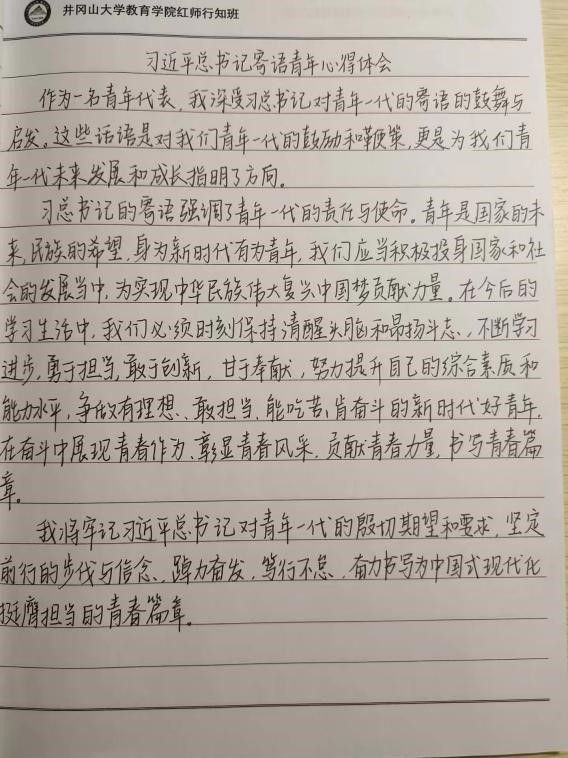 井冈山大学教育学院红师行知班
习近平总书记寄语青年心得体会
作为一名青年代表,我深受习总书记对青年一代的寄语的鼓舞与
启发。这些话语是对我们青年一代的鼓励和鞭策,更是为我们青
年一代未来发展和成长指明了方向。
习总书记的寄语强调了青年一代的责任与使命。青年是国家的未
来,民族的希望,身为新时代有为青年,我们应当积极投身国家和社
会的发展当中,为实现中华民族伟大复兴中国梦贡献力量。在今后的
学习生活中,我们必须时刻保持清醒头脑和昂扬斗志,不断学习
进步,勇于担当,敢于创新,甘于奉献,努力提升自己的综合素质和
能力水平,争做有理想、敢担当、能吃苦、肯奋斗的新时代好青年,
在奋斗中展现青春作为、彰显青春风采、贡献青春力量,书写青春篇
章。
我将牢记习近平总书记对青年一代的殷切期望和要求,坚定
前行的步伐与信念、踔力奋发,笃行不怠,奋力书写为中国式现代化
挺膺担当的青春篇章。